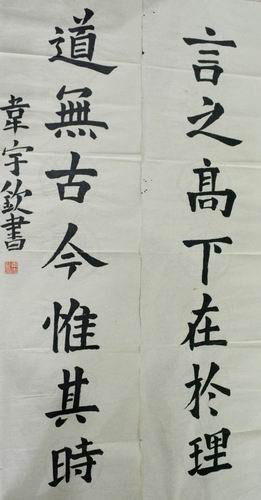 言之高下在於理
道無古今惟其時
韋宇欽書